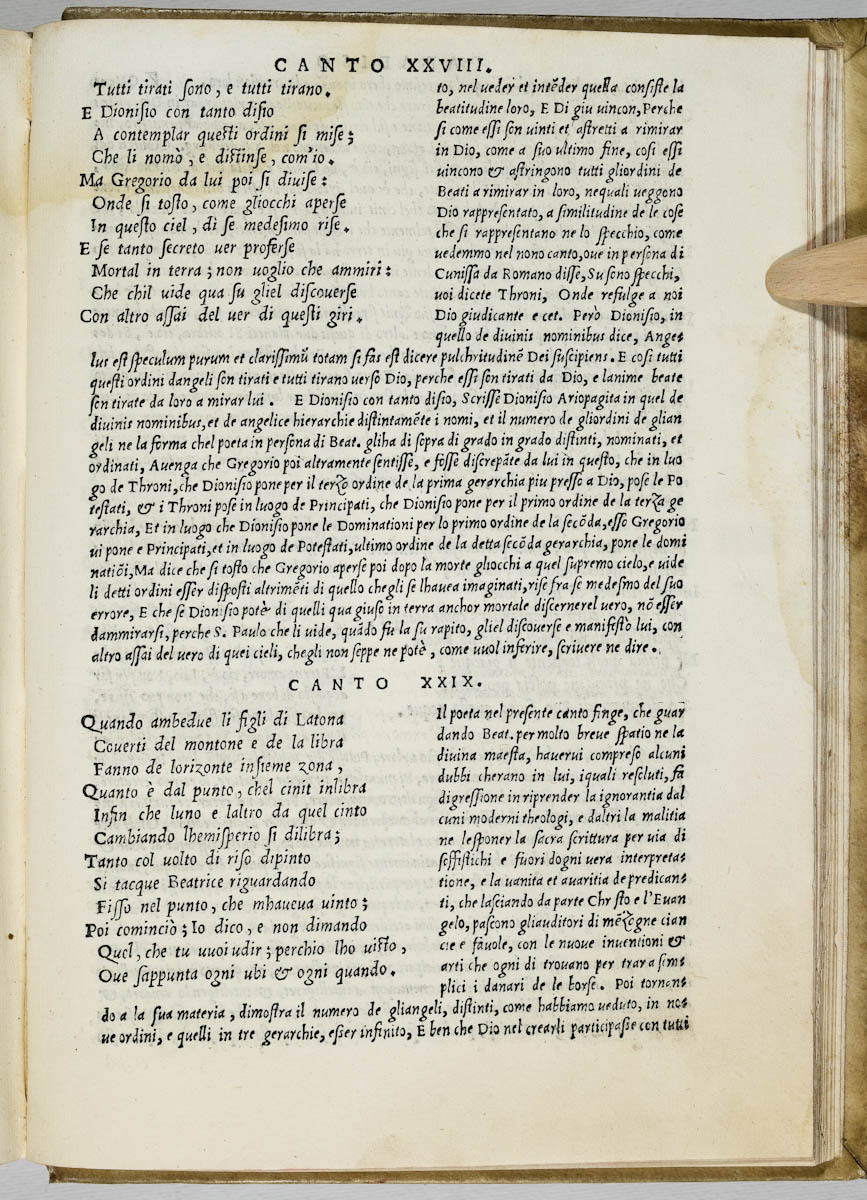 CANTO XXVIII.
Tutti tirati sono, e tutti tirano.
E Dionisio con tanto disio
A contemplar questi ordini si mise;
Che li nomò, e distinse, com'io.
Ma Gregorio da lui poi si divise:
Onde si tosto, come gliocchi aperse
In questo ciel, di se medesimo rise.
E se tanto secreto uer proferse
Mortal in terra; non uoglio che ammiri:
Che chil uide qua su gliel discouerse
Con altro assai del uer di questi giri.
to, nel ueder et intẽder quella consiste la
beatitudine loro, E Di giu uincon, Perche
si come essi son uinti et astretti a rimirar
in Dio, come a suo ultimo fine, cosi essi
uincono & astringono tutti gliordini de
Beati a rimirar in loro, nequali ueggono
Dio rappresentato, a similitudine de le cose
che si rappresentano ne lo specchio, come
uedemmo nel nono canto, oue in persona di
Cunissa da Romano disse, Su sono specchi,
uoi dicete Throni, Onde refulge a noi
Dio giudicante e cet. Però Dionisio, in
quello de diuinis nominibus dice, Ange-
lus est speculum purum et clarissimũ totam si fas est dicere pulchritudinẽ Dei suscipiens. E cosi tutti
questi ordini dangeli son tirati e tutti tirano uerso Dio, perche essi son tirati da Dio, e lanime beate
son tirate da loro a mirar lui. E Dionisio con tanto disio, Scrisse Dionisio Ariopagita in quel de
diuinis nominibus, et de angelice hierarchie distintamẽte i nomi, et il numero de gliordini de glian
geli ne la forma chel poeta in persona di Beat. gliha di sopra di grado in grado distinti, nominati, et
ordinati, Auenga che Gregorio poi altramente sentisse, e fosse discrepãte da lui in questo, che in luo
go de Throni, che Dionisio pone per il terzo ordine de la prima gerarchia piu presso a Dio, pose le Po
testati, & i Throni pose in luogo de Principati, che Dionisio pone per il primo ordine de la terza ge
rarchia, Et in luogo che Dionisio pone le Dominationi per lo primo ordine de la secõda, esso Gregorio
ui pone e Principati, et in luogo de Potestati, ultimo ordine de la detta secõda gerarchia, pone le domi
natiõi, Ma dice che si tosto che Gregorio aperse poi dopo la morte gliocchi a quel supremo cielo, e uide
li detti ordini esser disposti altrimẽti di quello chegli se lhauea imaginati, rise fra se medesmo del suo
errore, E che se Dionisio potè di quelli qua giuso in terra anchor mortale discernerel uero, nõ esser
dammirarsi, perche S. Paulo che li uide, quãdo fu la su rapito, gliel discouerse e manifestò lui, con
altro assai del uero di quei cieli, chegli non seppe ne potè, come uuol inferire, scriuere ne dire.
CANTO XXIX.
Quando ambedue li figli di Latona
Couerti del montone e de la libra
Fanno de lorizonte insieme zona,
Quanto è dal punto, chel cinit inlibra
Infin che luno e laltro da quel cinto
Cambiando lhemisperio si dilibra;
Tanto col uolto di riso dipinto
Si tacque Beatrice riguardando
Fisso nel punto, che mhaueua uinto;
Poi cominciò; Io dico, e non dimando
Quel, che tu uuoi udir; perchio lho uisto,
Oue sappunta ogni ubi & ogni quando.
Il poeta nel presente canto finge, che guar
dando Beat. per molto breue spatio ne la
diuina maesta, hauerui compreso alcuni
dubbi cherano in lui, iquali resoluti, fa
digressione in riprender la ignorantia dal
cuni moderni theologi, e daltri la malitia
ne lesponer la sacra scrittura per uia di
soffistichi e fuori dogni uera interpreta-
tione, e la uanita et auaritia de predican-
ti, che lasciando da parte Chr sto e l'Euan
gelo, pascono gliauditori di mẽzogne cian
cie e fauole, con le nuoue inuentioni &
arti che ogni di trouano per trar a sim-
plici i danari de le borse. Poi tornan-
do a la sua materia, dimostra il numero de gliangeli, distinti, come habbiamo ueduto, in no-
ue ordini, e quelli in tre gerarchie, esser infinito, E ben che Dio nel crearli participasse con tutti